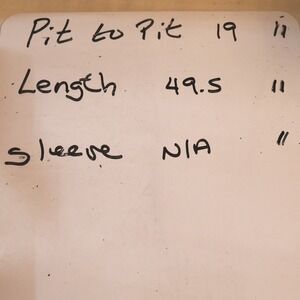 Pit to Pit 19 "
Length 49.5 "
sleeve N/A "